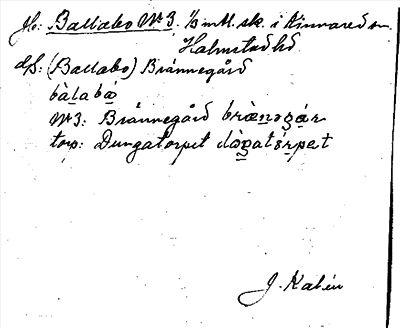 Jb: Ballabo Nr 3. 1/2 mtl. sk. i Kinnared sn.
Halmstad hd
Uf: (Ballabo) Brännegård
bàlabó
Nr 3: Brännegård brænəgár
torp: Dungatorpet
J. Kalén